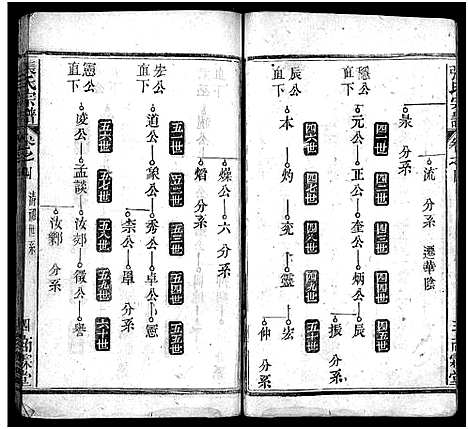 張氏宗譜
泉 分系
流 分系 遷華陰
隱公直下
元公 正公 奎公 炳公 辰
四一世 四二世 四三世 四四世 四五世
振 分系
辰公直下
本 灼 充 靈 宏
四六世 四七世 四八世 四九世 五十世
仲 分系
燦公 六 分系
熠 分系
宏公直下
道公 象公 秀公 卓公 憲
五一世 五二世 五三世 五四世 五五世
柰公 單 分系
憲公直下
凌公 孟談 汝郊 徵公 譽
五六世 五七世 五八世 五九世 六十世
汝鄉 分系
張氏宗譜 卷之四 清河世系 四